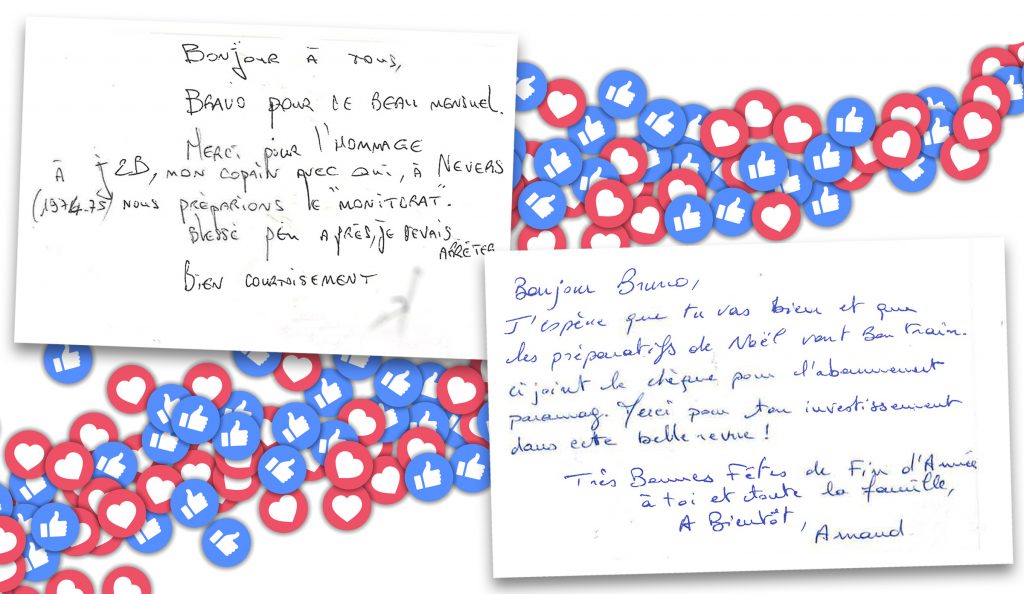 Bonjour à tous,
Bravo pour ce beau mensuel.
Merci pour l'hommage
à J2B, mon copain avec qui, à Nevers
(1974-75) nous préparions le "monitorat".
Blessé peu après, je devais
arrêter
Bien courtoisement
Bonjour Bruno,
J'espère que tu vas bien et que
les préparatifs de Noël vont bon train.
ci joint le chèque pour l'abonnement
paramag. Merci pour ton investissement
dans cette belle revue !
Très Bonnes Fêtes de Fin d'Année
à toi et toute la famille,
A Bientôt,
Arnaud